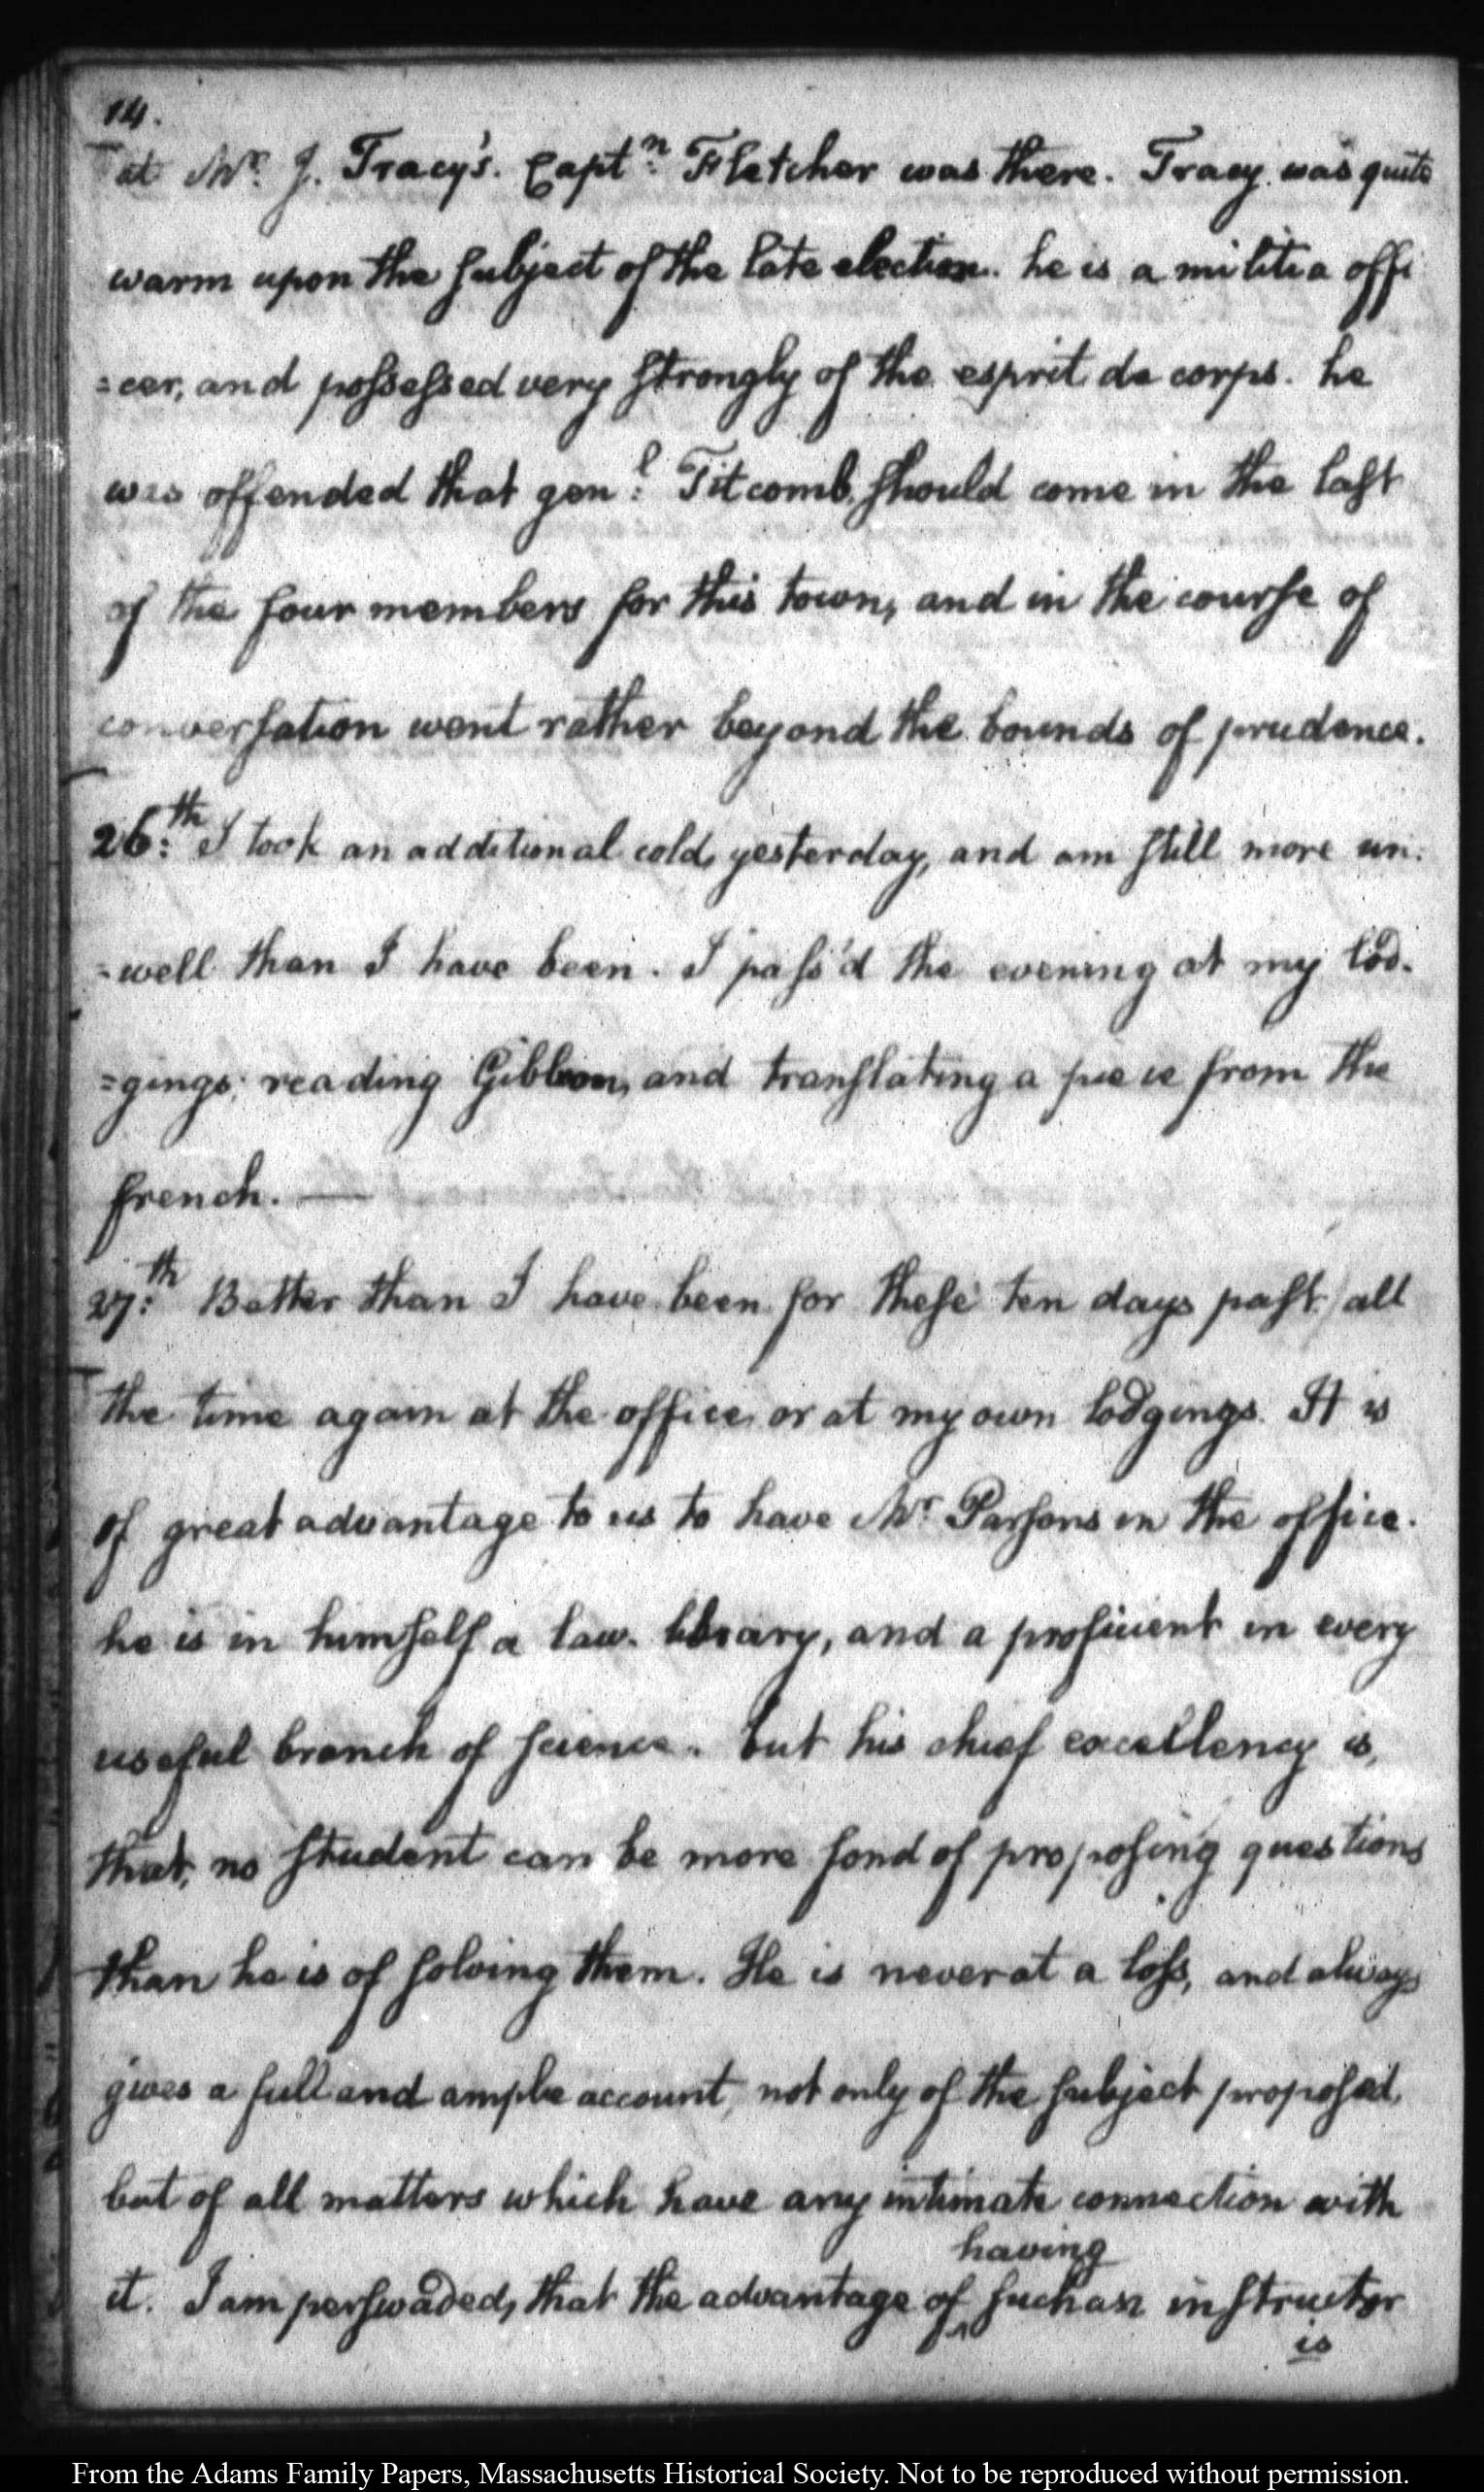 14.
at Mr. J. Tracy's. Captn. Fletcher was there. Tracy was quite
warm upon the subject of the late election. he is a militia offi
=cer, and possessed very strongly of the esprit de corps. he
was offended that genl. Titcomb, should come in the last
of the four members for this town, and in the course of
conversation went rather beyond the bounds of prudence.
26:th I took an additional cold, yesterday, and am still more un:
=well than I have been. I pass'd the evening at my lod-
=gings; reading Gibbon, and translating a piece from the
french. —
27:th Better than I have been for these ten days past. all
the time again at the office, or at my own lodgings. It is
of great advantage to us to have Mr Parsons in the office.
he is in himself a law-library, and a proficient in every
useful branch of science. but his chief excellency is,
that, no student can be more fond of proposing questions
than he is of solving them. He is never at a loss, and always
gives a full and ample account, not only of the subject proposed,
but of all matters which have any intimate connection with
having
it. I am perswaded, that the advantage of ^ such an instructor
is
From the Adams Family Papers, Massachusetts Historical Society. Not to be reproduced without permission.